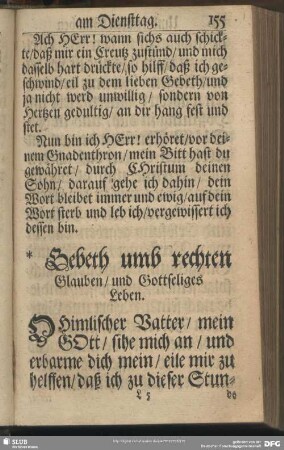 am Diensttag. 155
Ach HErr! wann sichs auch schick-
te/daß mir ein Creutz zustünd/und mich
dasselb hart drückte/so hilff/daß ich ge-
schwind/eil zu dem lieben Gebeth/und
ja nicht werd unwillig/ sondern von
Hertzen gedultig/ an dir hang fest und
stet.
Nun bin ich HErr! erhöret/vor dei-
nem Gnadenthron/mein Bitt hast du
gewähret/ durch CHristum deinen
Sohn/ darauf gehe ich dahin/ dein
Wort bleibet immer und ewig/auf dein
Wort sterb und leb ich/vergewissert ich
dessen bin.
* Gebeth umb rechten
Glauben/und Gottseliges
Leben.
O Himlischer Vatter/ mein
GOtt/ sihe mich an/ und
erbarme dich mein/ eile mir zu
helffen/daß ich zu dieser Stun-
de
SLUB
DFG